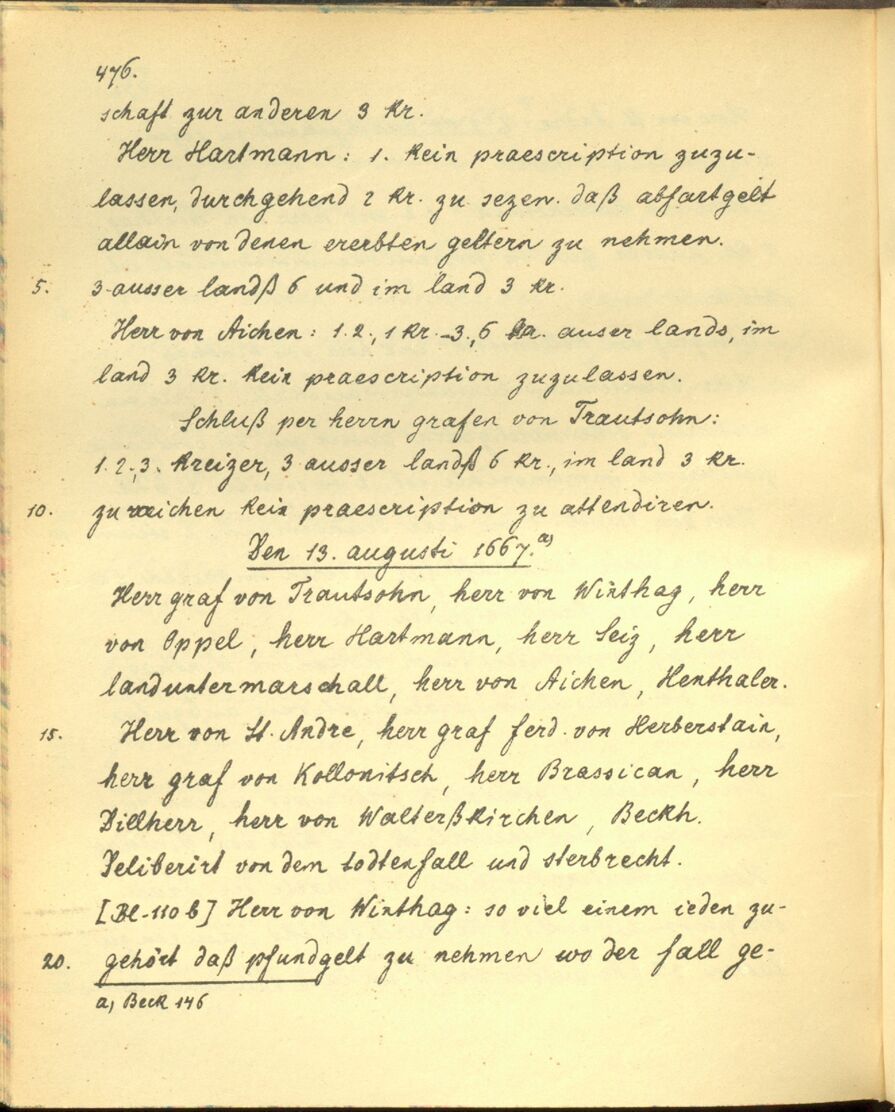 476.
schaft zur anderen 3 Kr.
Herr Hartmann: 1. Kein praescription zuzu-
lassen, durchgehend 2 Kr. zu sezen. daß abfartgelt
allain von denen ererbten geltern zu nehmen.
5. 3 ausser landß 6 und im land 3 Kr.
Herr von Aichen: 1.2., 1 Kr. -3., 6 Kr. auser lands, im
land 3 Kr. Kein praescription zuzulassen.
Schluß per herrn grafen von Trautsohn:
1.2.,3. Kreizer, 3 ausser landß 6 Kr., im land 3 Kr.
10. zu reichen Kein praescription zu attendiren.
Den 13. augusti 1667. a)
Herr graf von Trautsohn, herr von Wirthag, herr
von Oppel, herr Hartmann, herr Seiz, herr
landuntermarschall, herr von Aichen, Henthaler.
15. Herr von St. Andre, herr graf ferd. von Herberstain,
herr graf von Kollonitsch, herr Brassican, herr
Dillherr, herr von Walterßkirchen, Beckh.
Deliberirt von dem todtenfall und sterbrecht.
[Bl. 110 b] Herr von Wirthag: so viel einem ieden zu-
20. gehört daß pfundgelt zu nehmen wo der fall ge-
a) Beck 146